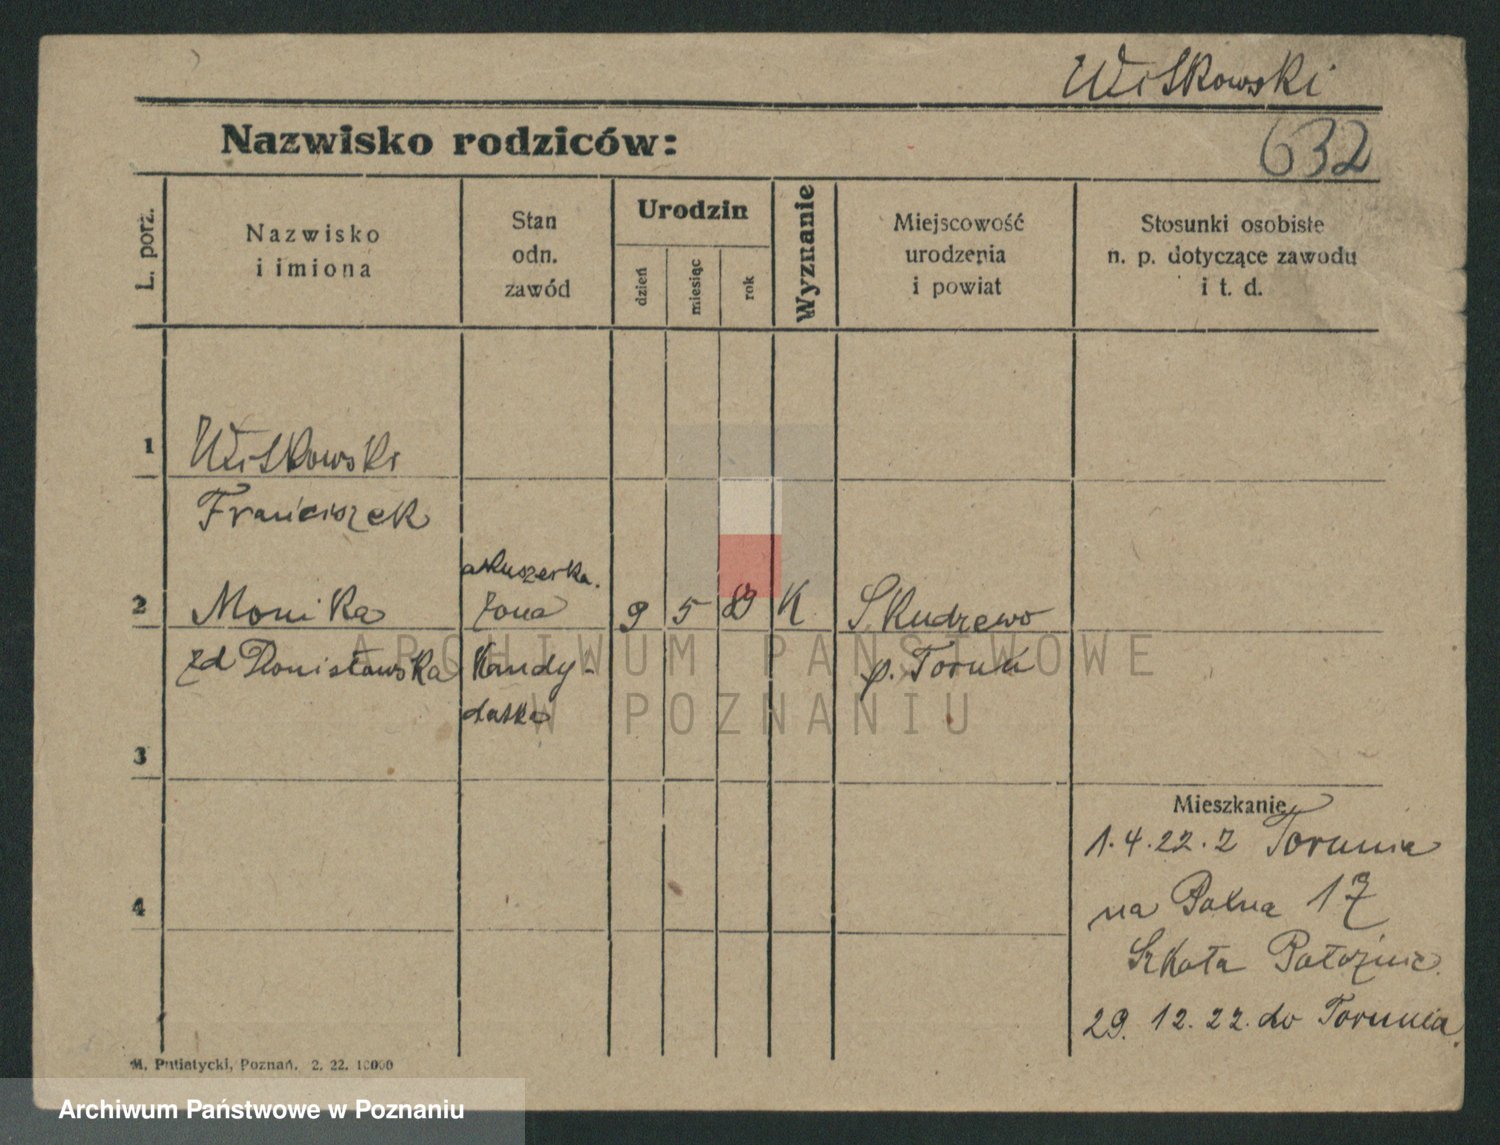 Witkowski
Nazwisko rodziców:
632
L. porz.
Nazwisko
i imiona
Stan
odn.
zawód
Urodzin
dzień
miesiąc
rok
Wyznanie
Miejscowość
urodzenia
i powiat
Stosunki osobiste
n. p. dotyczące zawodu
i t. d.
1
Witkowski
Franciszek
akuszerka.
2 Monika żona 9 5 89 K Skudzewo
zd Donisławska Kandy-
datka
p. Toruń
3
4
Mieszkanie
1.4.22. z Torunia
na Polna 17
Szkoła Położnic.
29. 12. 22. do Torunia.
M. Putiatycki, Poznań. 2. 22. 10000
ARCHIWUM PAŃSTWOWE
W POZNANIU
Archiwum Państwowe w Poznaniu